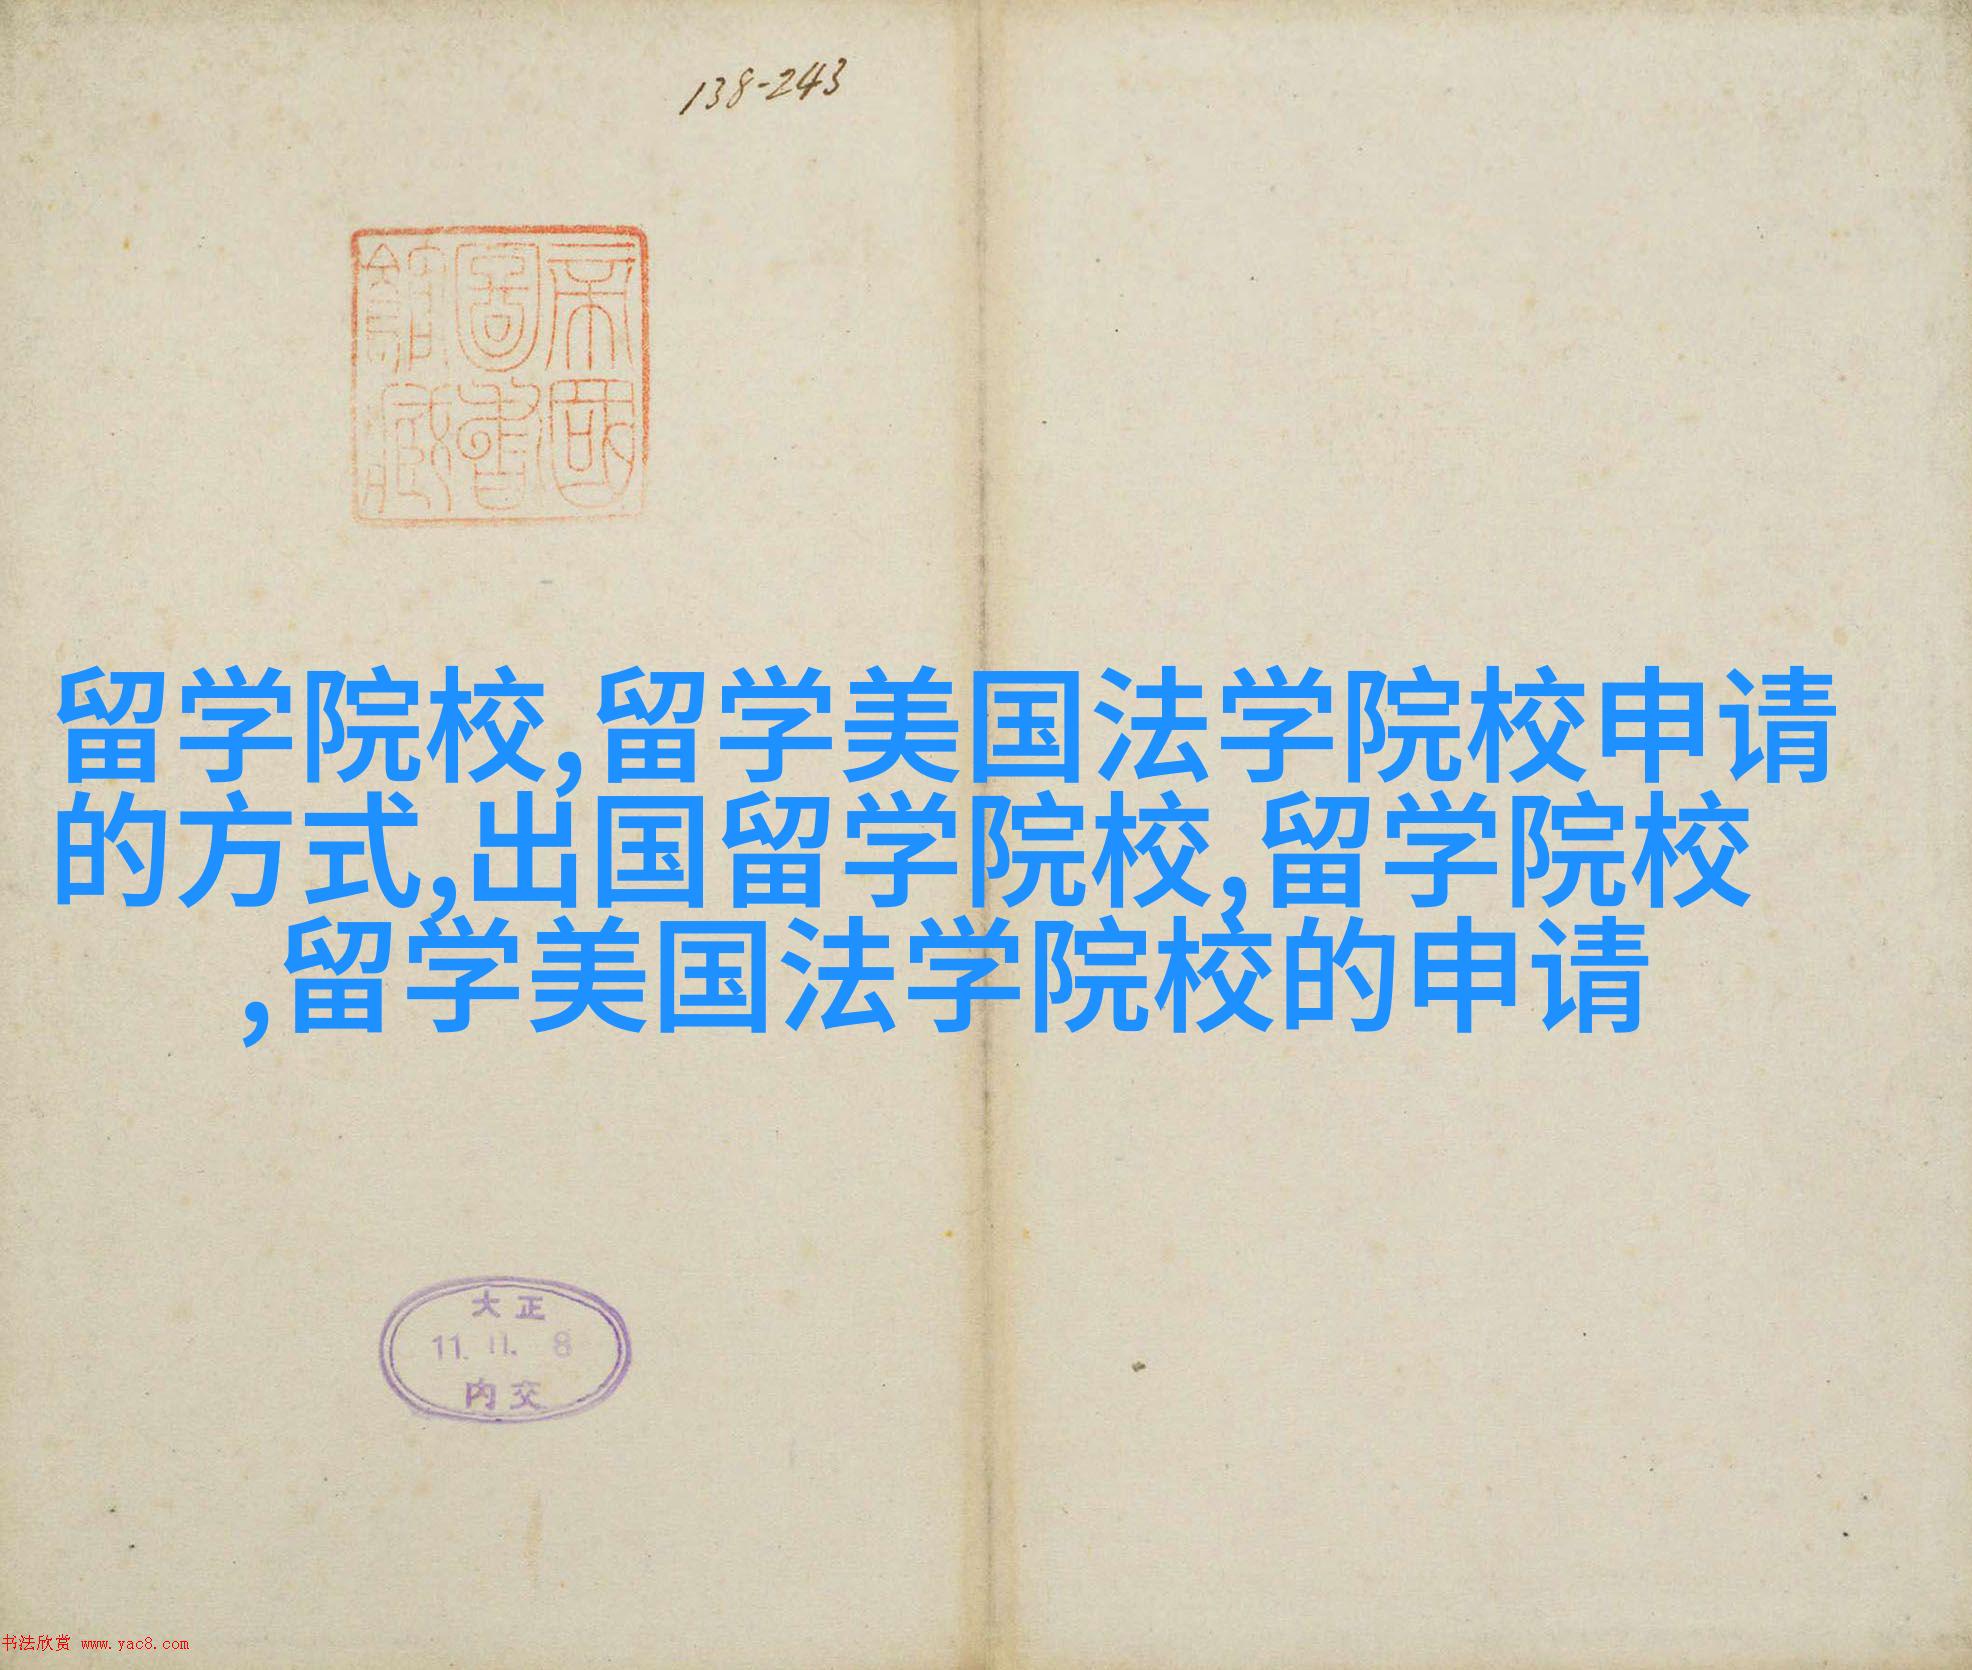 138-243
帝国
圖書
館藏
留学院校,留学美国法学院校申请
的方式,出国留学院校,留学院校
,留学美国法学院校的申请
大正
11. 11. 8
内交
书法欣赏 www.yac8.com